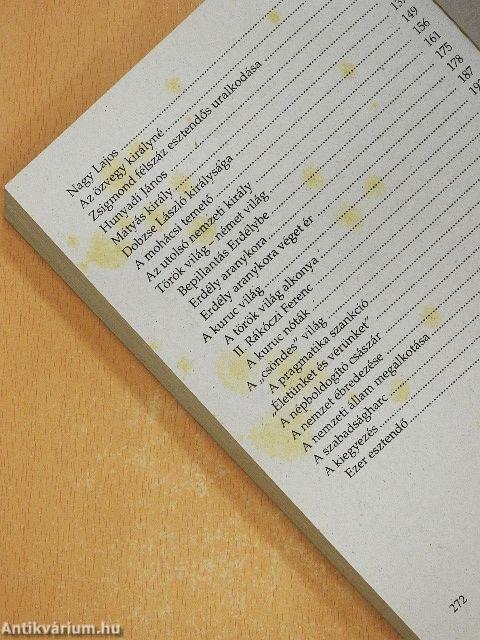 149
156
161
175
178
187
Nagy Lajos
Az özvegy királyné
Zsigmond félszáz esztendős uralkodása
Hunyadi János
Mátyás király
Dobzse László királysága
A mohácsi temető
Az utolsó nemzeti király
Török világ – német világ
Bepillantás Erdélybe
Erdély aranykora
Erdély aranykora véget ér
A kuruc világ
A török világ alkonya
II. Rákóczi Ferenc
A kuruc nóták
A „csöndes” világ
A pragmatika szankció
„Életünket és vérünket”
A népboldogító császár
A nemzet ébredezése
A nemzeti állam megalkotása
A szabadságharc
A kiegyezés
Ezer esztendő
272
Antikvárium.hu